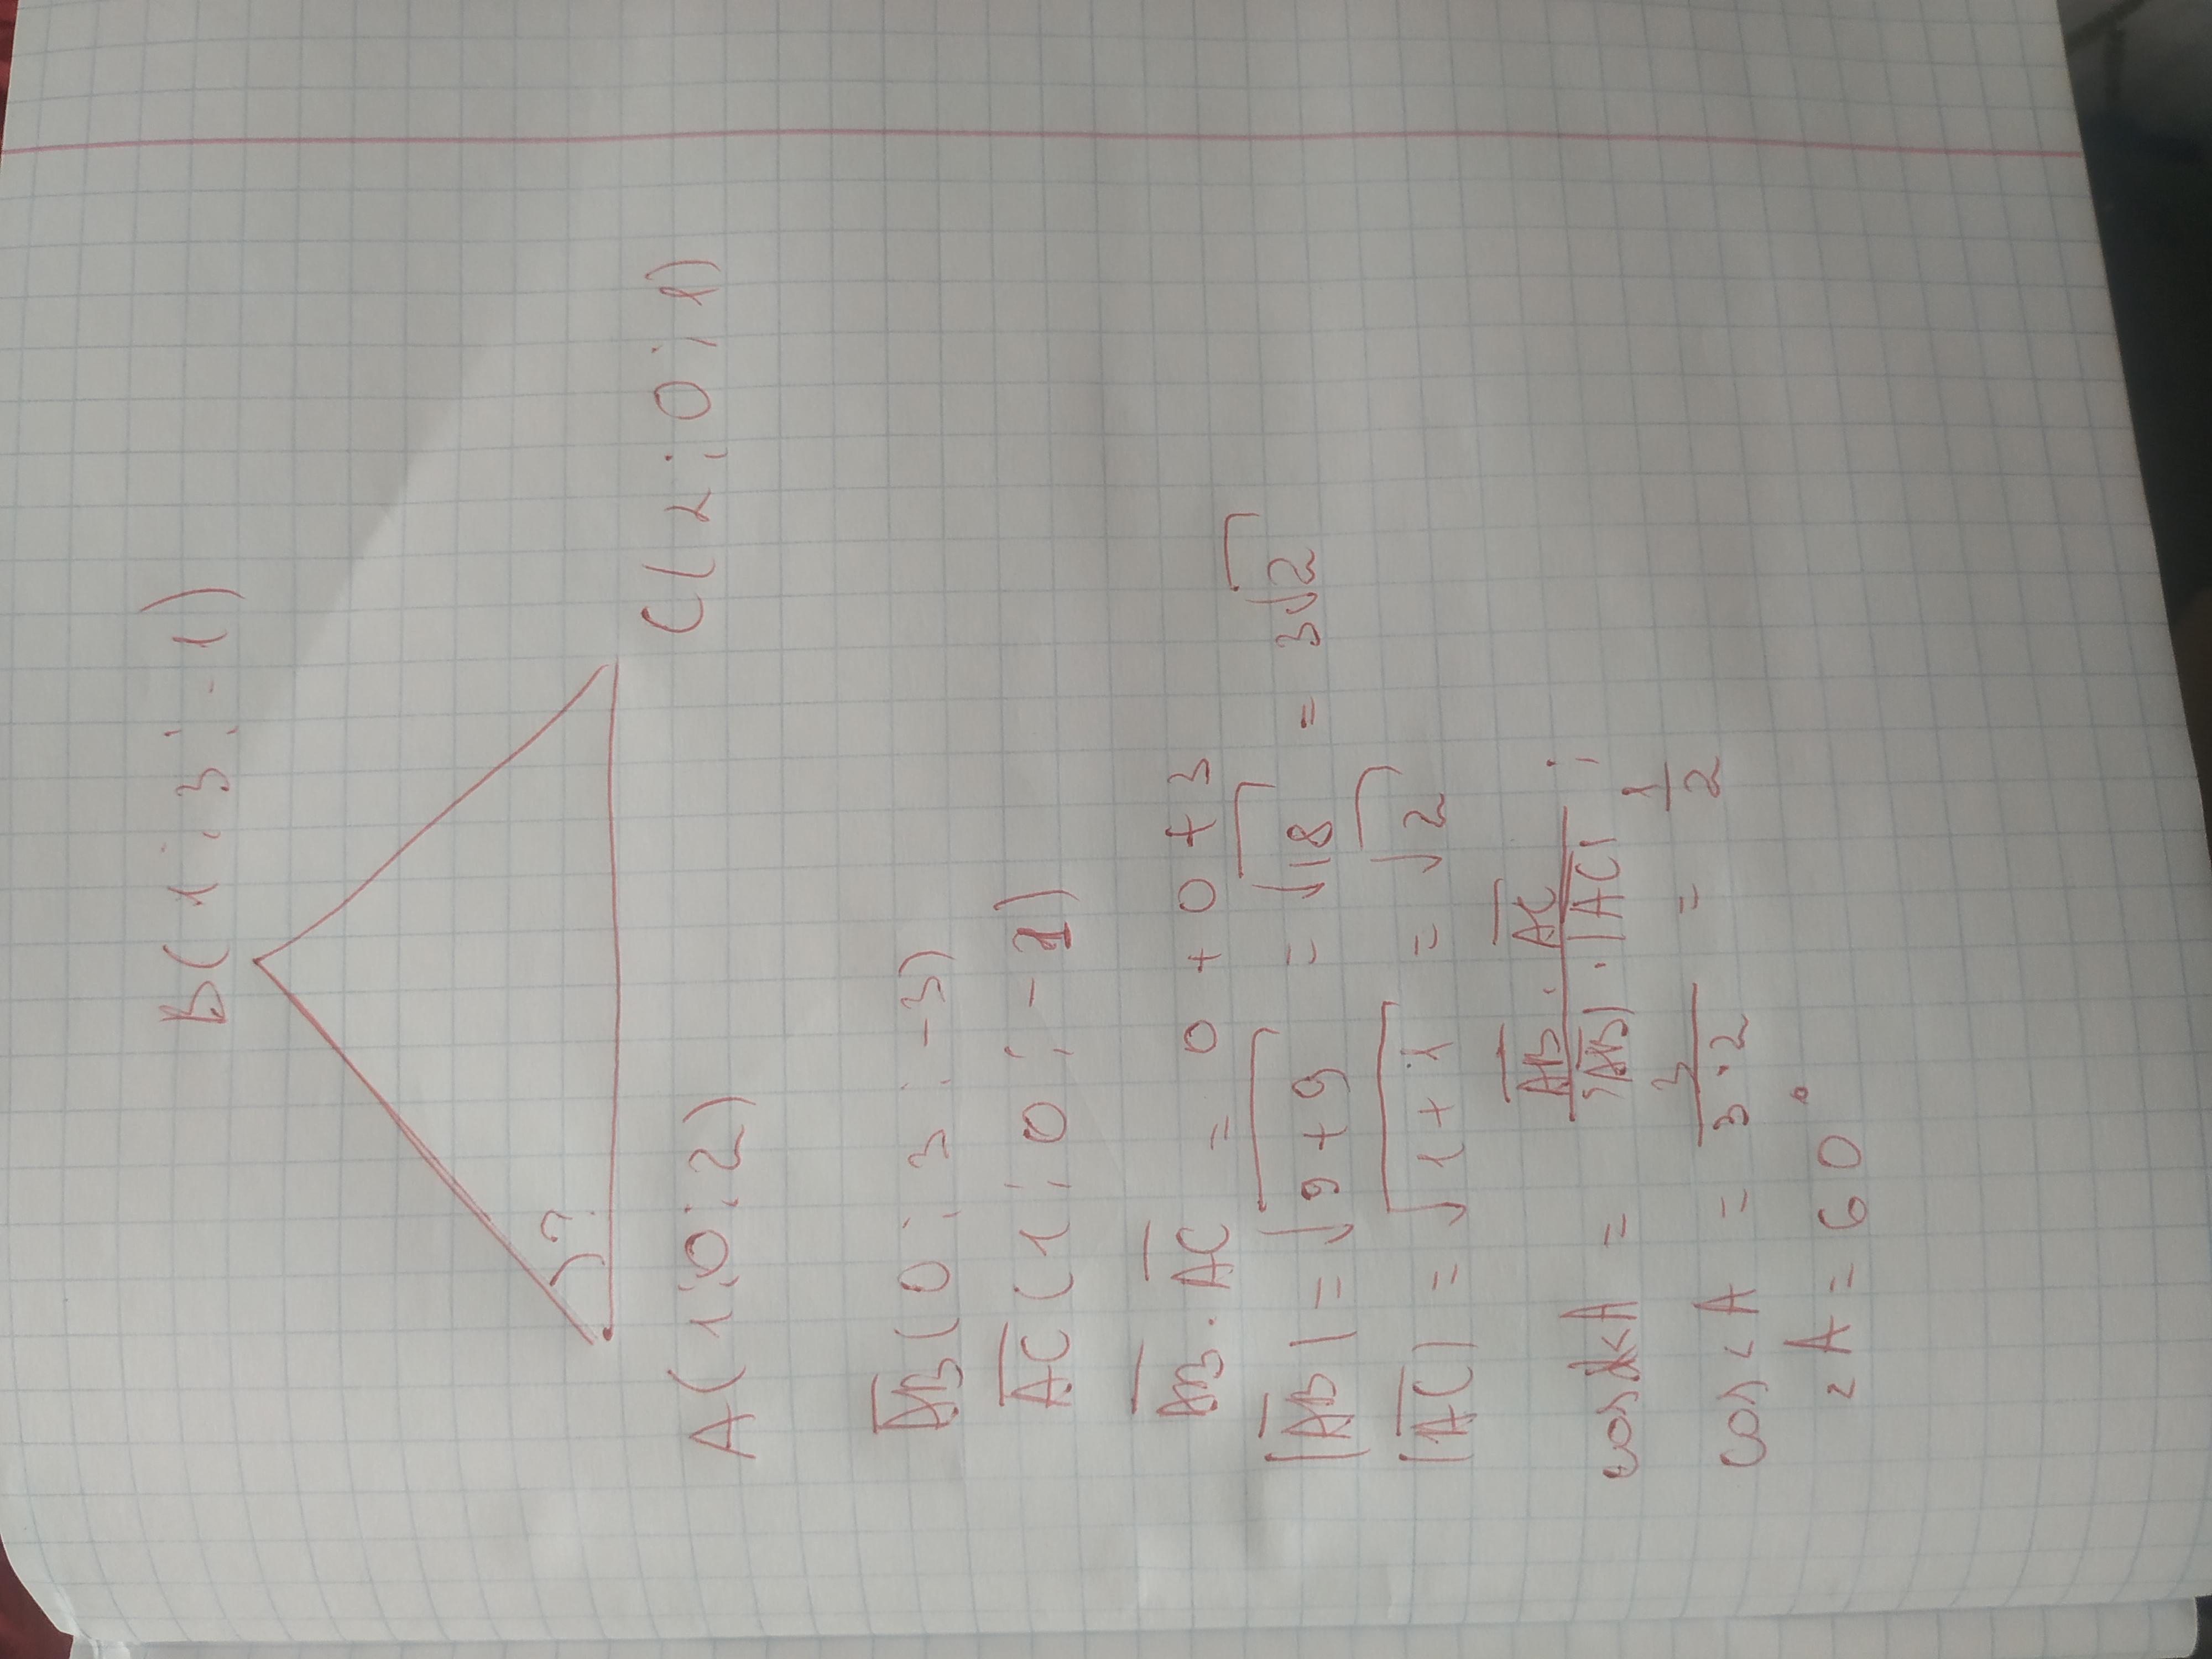 B(1;3;-1)
?
A(1;0;2) C(2;0;1)
AB(0;3;-3)
AC(1;0;-1)
AB·AC = 0+0+3
|AB| = √9+9 = √18 = 3√2
|AC| = √1+1 = √2
cos∠A = AB·AC / |AB|·|AC| ;
cos∠A = 3 / 3·2 = 1/2
∠A = 60°